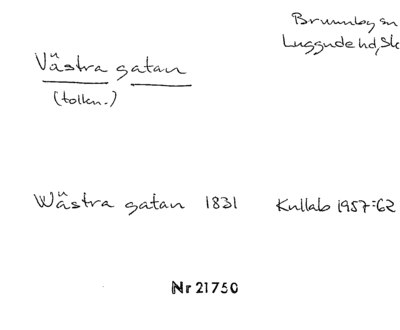 Brunnby sn
Luggude hd, Sk
Västra gatan
(tolkn.)
Wästra gatan 1831 Kullab 1957:62
Nr 21750